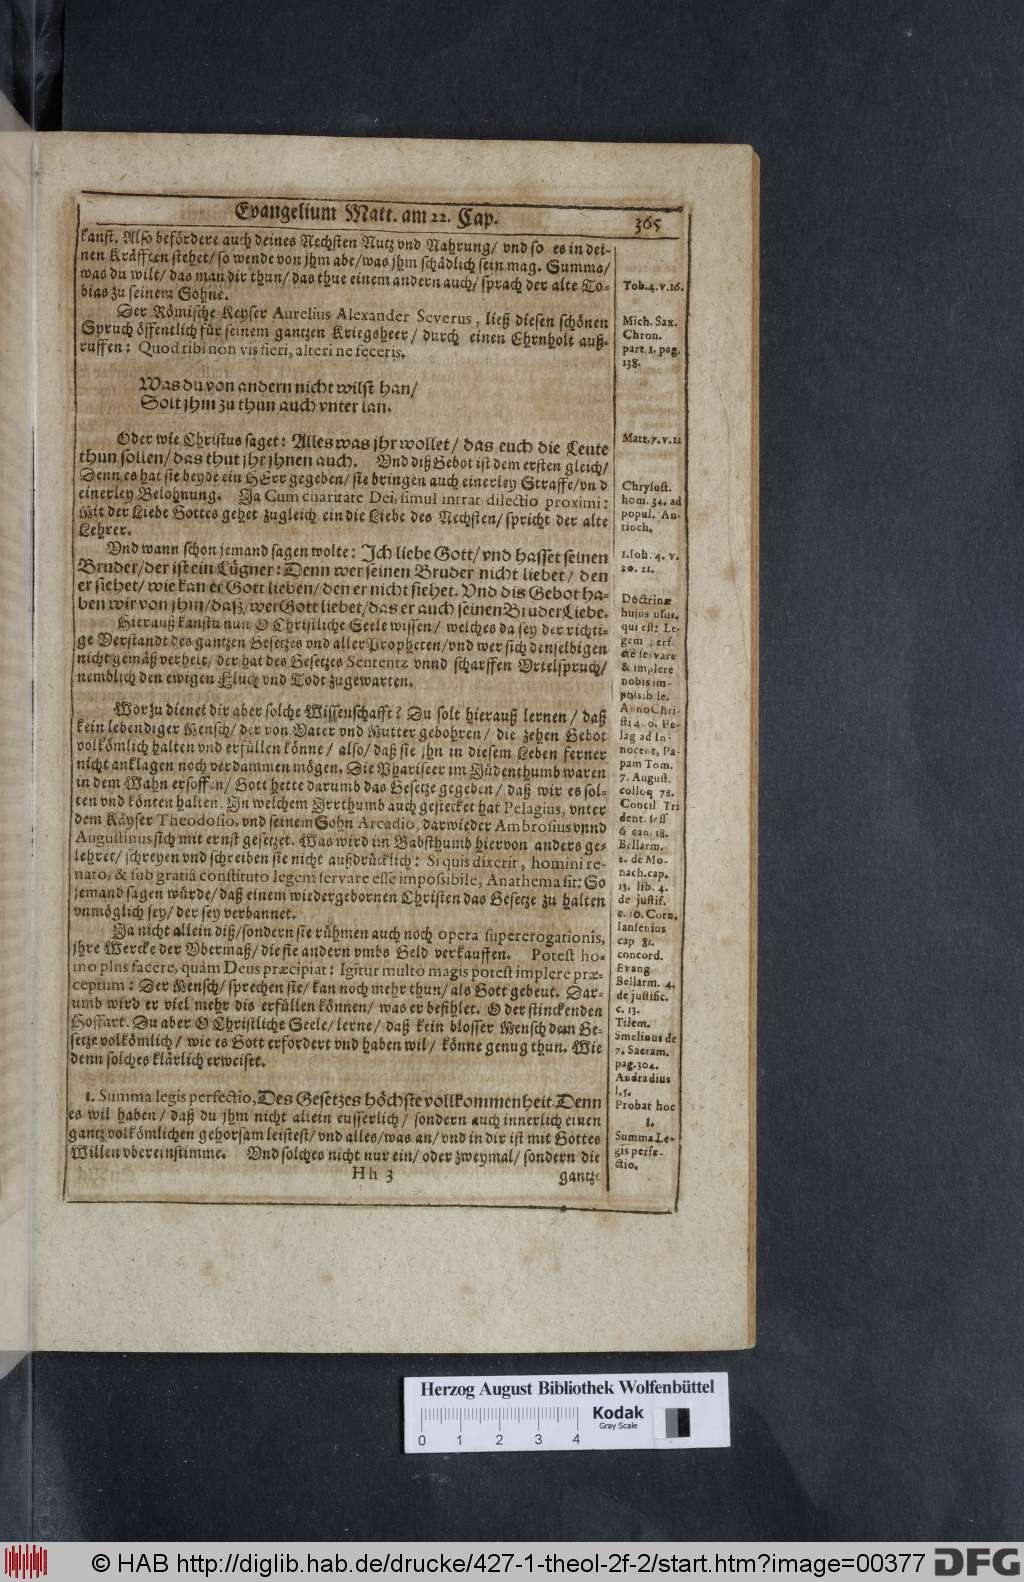 Evangelium Matt. am 22. Cap.
365
kanst. Also befördere auch deines Nechsten Nutz vnd Nahrung/ vnd so es in dei-
nen Kräfften stehet/ so wende von jhm abe/ was jhm schädlich sein mag. Summa/
was du wilt/ das man dir thun/ das thue einem andern auch/ sprach der alte To-
bias zu seinem Sohne.
Der Römische Keyser Aurelius Alexander Severus, ließ diesen schönen
Spruch öffentlich für seinem gantzen Kriegsheer/ durch einen Ehrnholt auß-
ruffen: Quod tibi non vis fieri, alteri ne feceris.
Was du von andern nicht wilst han/
Solt jhm zu thun auch vnter lan.
Oder wie Christus saget: Alles was jhr wollet/ das euch die Leute
thun sollen/ das thut jhr jhnen auch. Vnd diß Gebot ist dem ersten gleich/
Denn es hat sie beyde ein HErr gegeben/ sie bringen auch einerley Straffe/ vnd
einerley Belohnung. Ja Cum charitate Dei, simul intrat dilectio proximi:
Mit der Liebe Gottes gehet zugleich ein die Liebe des Nechsten/ spricht der alte
Lehrer.
Vnd wann schon jemand sagen wolte: Ich liebe Gott/ vnd hasset seinen
Bruder/ der ist ein Lügner: Denn wer seinen Bruder nicht liebet/ den
er siehet/ wie kan er Gott lieben/ den er nicht siehet. Vnd dis Gebot ha-
ben wir von jhm/ daß/ wer Gott liebet/ das er auch seinen Bruder Liebe.
Hierauß kanstu nun O Christliche Seele wissen/ welches da sey der richti-
ge Verstandt des gantzen Gesetzes vnd aller Propheten/ vnd wer sich denselbigen
nicht gemäß verhelt/ der hat des Gesetzes Sententz vnnd scharffen Vrtelspruch/
nemblich den ewigen Fluch vnd Todt zugewarten.
Worzu dienet dir aber solche Wissenschafft? Du solt hierauß lernen/ daß
kein lebendiger Mensch/ der von Vater vnd Mutter gebohren/ die zehen Gebot
volkömlich halten vnd erfüllen könne/ also/ daß sie jhn in diesem Leben ferner
nicht anklagen noch verdammen mögen. Die Phariseer im Jüdenthumb waren
in dem Wahn ersoffen/ Gott hette darumb das Gesetze gegeben/ daß wir es sol-
ten vnd könten halten. In welchem Irrthumb auch gestecket hat Pelagius, vnter
dem Käyser Theodosio, vnd seinem Sohn Arcadio, darwieder Ambrosius vnnd
Augustinus sich mit ernst gesetzet. Was wird im Babsthumb hiervon anders ge-
lehret/ schreyen vnd schreiben sie nicht außdrücklich: Si quis dixerit, homini re-
nato, & sub gratiâ constituto legem servare esse impossibile, Anathema sit: So
jemand sagen würde/ daß einem wiedergebornen Christen das Gesetze zu halten
vnmöglich sey/ der sey verbannet.
Ja nicht allein diß/ sondern sie rühmen auch noch opera supererogationis,
jhre Wercke der Vbermaß/ die sie andern vmbs Geld verkauffen. Potest ho-
mo plus facere, quàm Deus præcipiat: Igitur multo magis potest implere præ-
ceptum: Der Mensch/ sprechen sie/ kan noch mehr thun/ als Gott gebeut. Dar-
umb wird er viel mehr dis erfüllen können/ was er befihlet. O der stinckenden
Hoffart. Du aber O Christliche Seele/ lerne/ daß kein blosser Mensch dem Ge-
setze volkömlich/ wie es Gott erfordert vnd haben wil/ könne genug thun. Wie
denn solches klärlich erweiset.
1. Summa legis perfectio, Des Gesetzes höchste vollkommenheit. Denn
es wil haben/ daß du jhm nicht allein eusserlich/ sondern auch innerlich einen
gantz volkömlichen gehorsam leistest/ vnd alles/ was an/ vnd in dir ist mit Gottes
Willen vbereinstimme. Vnd solches nicht nur ein/ oder zweymal/ sondern die
Hh 3
gantze
Tob. 4. v. 16.
Mich. Sax.
Chron.
part. 1. pag.
138.
Matt. 7. v. 12
Chrysost.
hom. 34. ad
popul. An-
tioch.
1. Ioh. 4. v.
20. 21.
Doctrinæ
hujus usus,
qui est: Le-
gem perf-
ctè servare
& implere
nobis im-
possibile.
Anno Chri-
sti 400, Pe-
lag ad In-
nocent, Pa-
pam Tom.
7. August.
colloq 78.
Concil Tri
dent. sess
6 can. 18.
Bellarm.
2. de Mo-
nach. cap.
13. lib. 4.
de justif.
c. 10. Corn.
Iansenius
cap 81.
concord.
Evang
Bellarm. 4.
de justific.
c. 13.
Tilem.
Smelinus de
7. Sacram.
pag. 304.
Andradius
l. 5.
Probat hoc
1.
Summa Le-
gis perfe-
ctio.
Herzog August Bibliothek Wolfenbüttel
Kodak
Gray Scale
0 1 2 3 4
© HAB http://diglib.hab.de/drucke/427-1-theol-2f-2/start.htm?image=00377
DFG